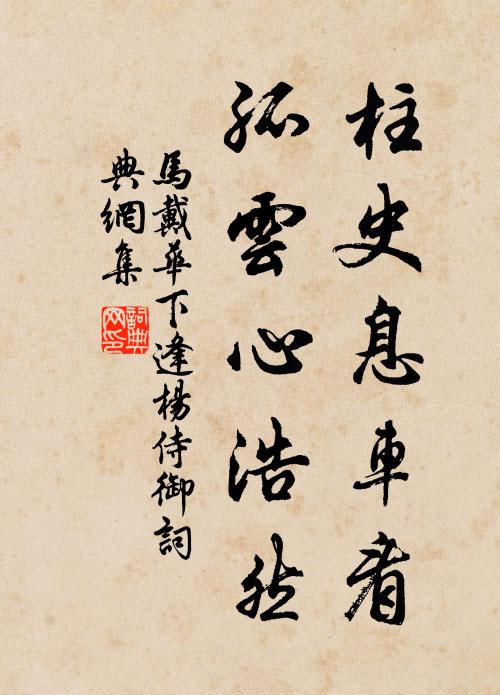 柱史息車看
孤雲心浩然
馬戴華下逢楊侍御詞
典網集
詞典网印